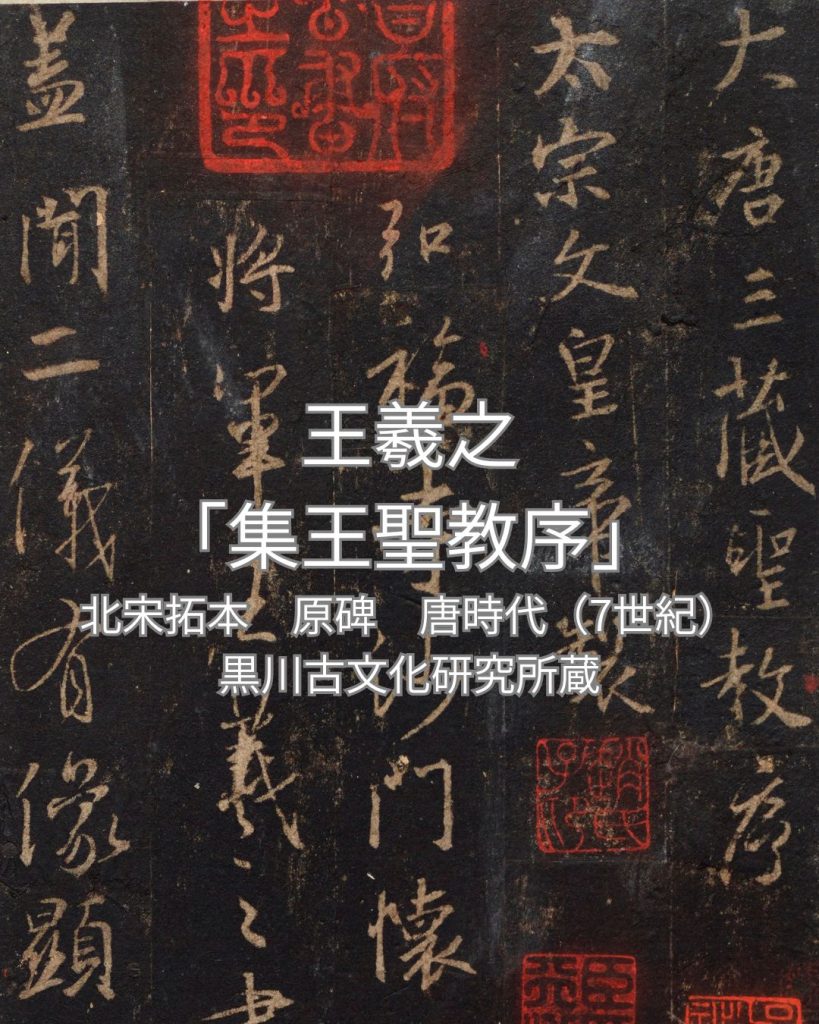 大唐三蔵聖教序
太宗文皇帝製
弘福寺沙門懷
将軍王羲之書
蓋聞二儀有像顯
王羲之
「集王聖教序」
北宋拓本　原碑　唐時代（7世紀）
黒川古文化研究所蔵